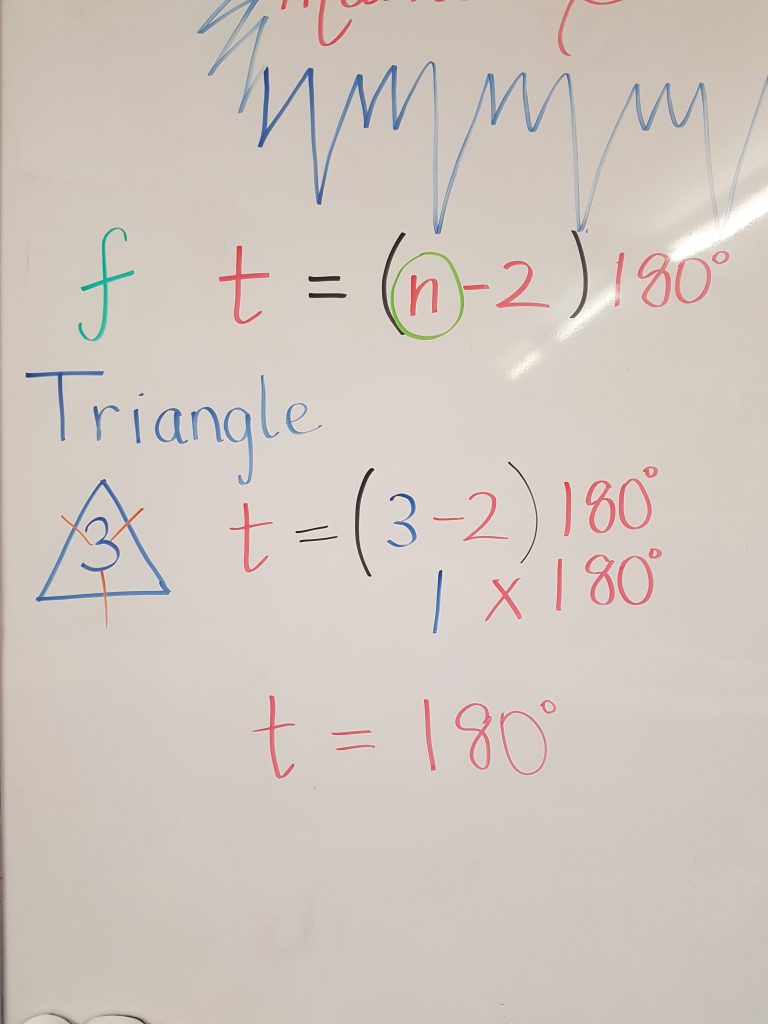 f t = (n-2)180°
Triangle
3 t = (3-2)180°
1 x 180°
t = 180°